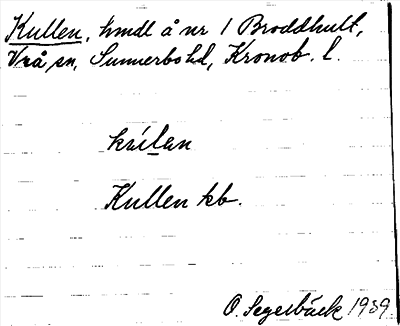 Kullen, hmdl å nr 1 Broddhult,
Vrå sn, Sunnerbo hd, Kronob. l.
Kullen kb.
O. Segerbäck 1939